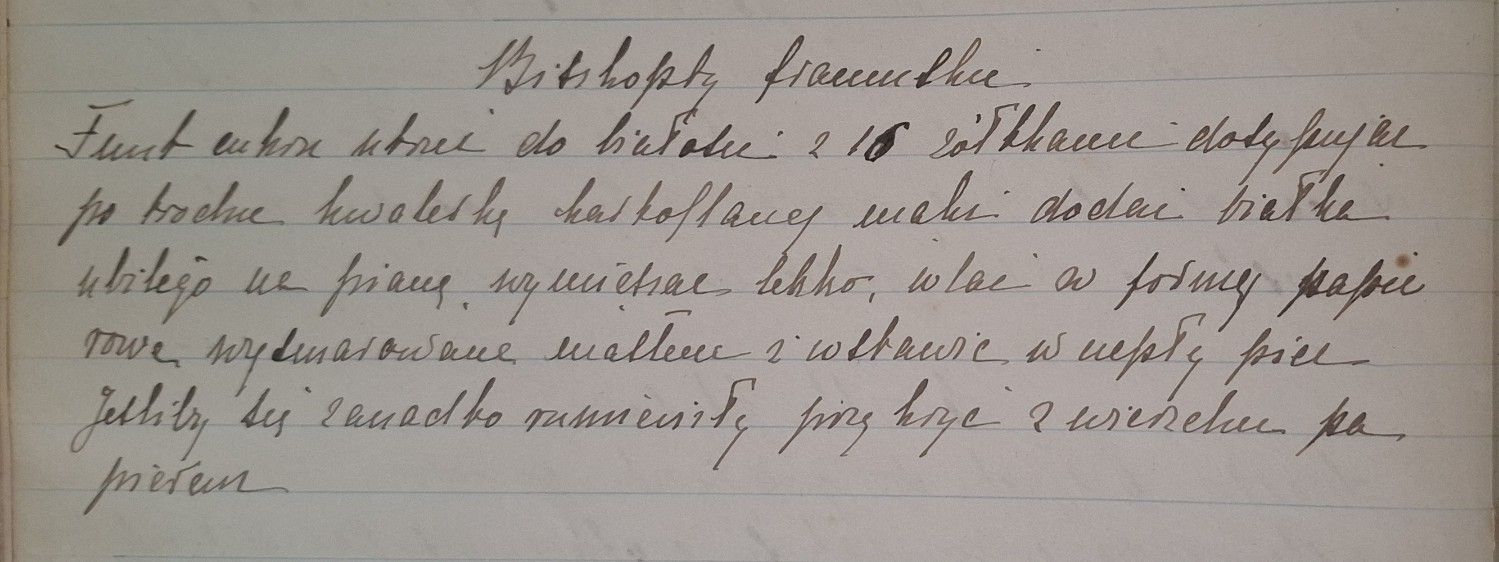 Biszkopty francuskie
Funt cukru utrzeć do białości z 16 żółtkami dosypując
po trochu kwaterkę kartoflanej mąki dodać białka
ubitego na pianę wymieszać lekko, wlać w formę papie
rowe wysmarowane masłem i wstawić w ciepły piec
Jeśliby się zanadto rumieniły przykryć z wierzchu pa
pierem